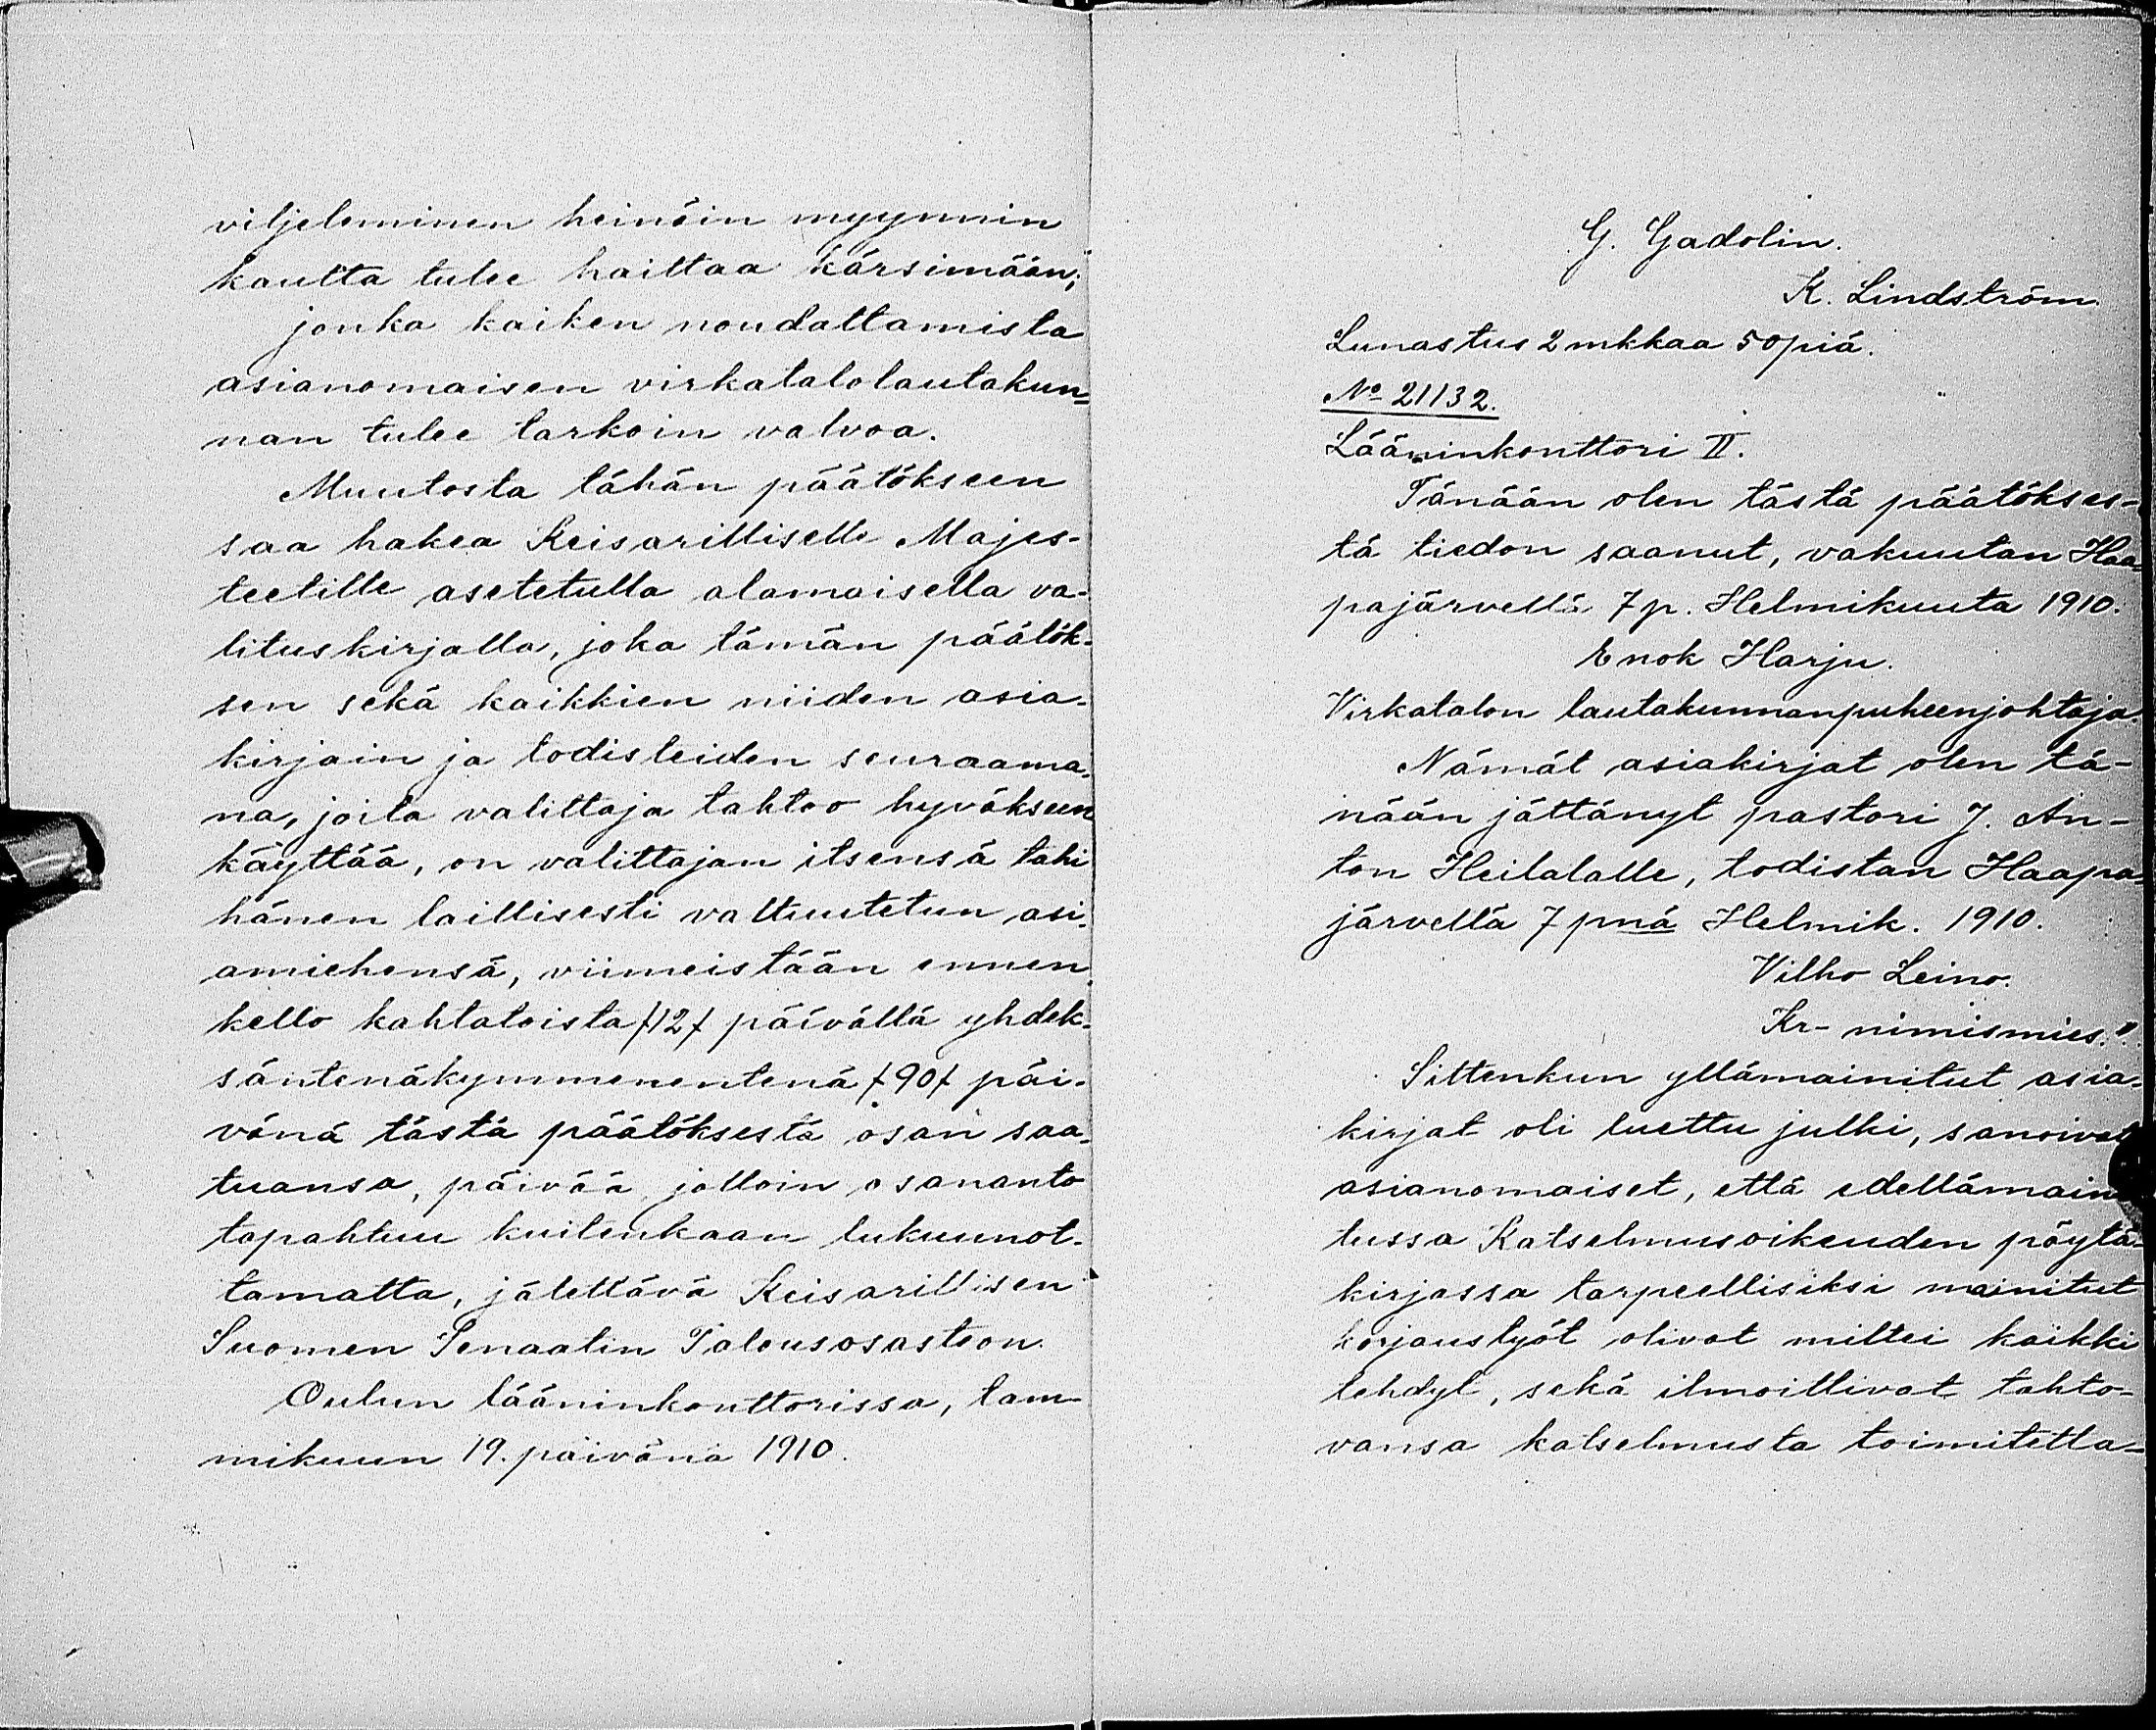 viljeleminen heinäin myynnin
kautta tulee haittaa kärsimään;
jonka kaiken noudattamista
asianomaisen virkatalolautakun=
nan tulee tarkoin valvoa.
Muutosta tähän päätökseen
saa hakea Keisarilliselle Majes-
teetille asetetulla alamaisella va-
lituskirjalla, joka tämän päätök-
sen sekä kaikkien niiden asia-
kirjain ja todisteiden seuraama-
na, joita valittaja tahtoo hyväkseen
käyttää, on valittajan itsensä tahi
hänen laillisesti valtuutetun asi-
amiehensä, viimeistään ennen
kello kahtatoista /12/ päivällä yhdek-
säntenäkymmenentenä /90/ päi-
vänä tästä päätöksestä osan saa-
tuansa, päivää jolloin osananto
tapahtuu kuitenkaan lukuunot-
tamatta, jätettävä Keisarillisen
Suomen Senaatin Talousosastoon.
Oulun lääninkonttorissa, tam-
mikuun 19. päivänä 1910.
G. Gadolin.
K. Lindström.
Lunastus 2 mkkaa 50 piä.
No 21132.
Lääninkonttori II.
Tänään olen tästä päätökses-
tä tiedon saanut, vakuutan Haa-
pajärvellä 7 p. Helmikuuta 1910.
Enok Harju.
Virkatalon lautakunnanpuheenjohtaja.
Nämät asiakirjat olen tä-
nään jättänyt pastori J. An-
ton Heilalalle, todistan Haapa-
järvellä 7 pnä Helmik. 1910.
Vilho Leino.
Kr- nimismies."
Sittenkun yllämainitut asia-
kirjat oli luettu julki, sanoivat
asianomaiset, että edellämaini
tussa Katselmusoikeuden pöytä-
kirjassa tarpeellisiksi mainitut
korjaustyöt olivat miltei kaikki
tehdyt, sekä ilmoittivat tahto-
vansa katselmusta toimitetta-